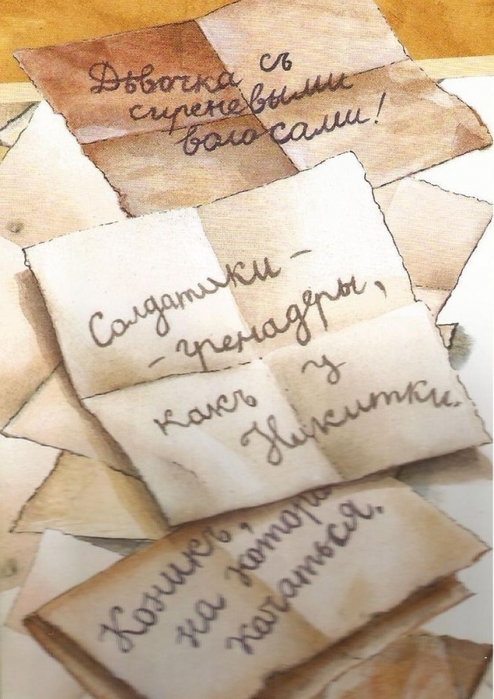 Дѣвочка съ
сиреневыми
волосами!
Солдатики -
- гренадеры,
какъ у
Никитки.
Коникъ,
на котор
качаться.